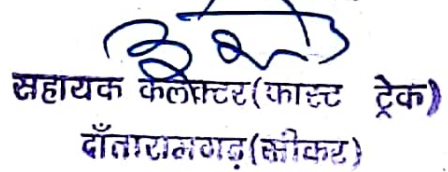 सहायक कलेक्टर(फास्ट ट्रेक)
दाँतारामगढ़(सीकर)